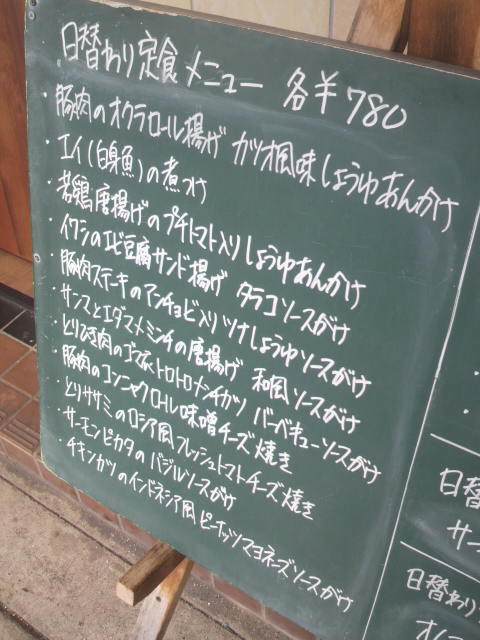 日替わり定食メニュー 各¥780
・豚肉のオクラロール揚げ カツオ風味しょうゆあんかけ
・エイ(白身魚)の煮つけ
・若鶏唐揚げのプチトマト入りしょうゆあんかけ
・イワシのエビ豆腐サンド揚げ タラコソースがけ
・豚肉ステーキのアンチョビ入りツナしょうゆソースがけ
・サンマとエダマメミンチの唐揚げ 和風ソースがけ
・とりひき肉のゴマ トロトロメンチカツ バーベキューソースがけ
・豚肉のコンニャクロール味噌チーズ焼き
・とりササミのロシア風フレッシュトマトチーズ焼き
・サーモンピカタのバジルソースがけ
・チキンカツのインドネシア風ピーナッツマヨネーズソースがけ
日替
サー
日替わり